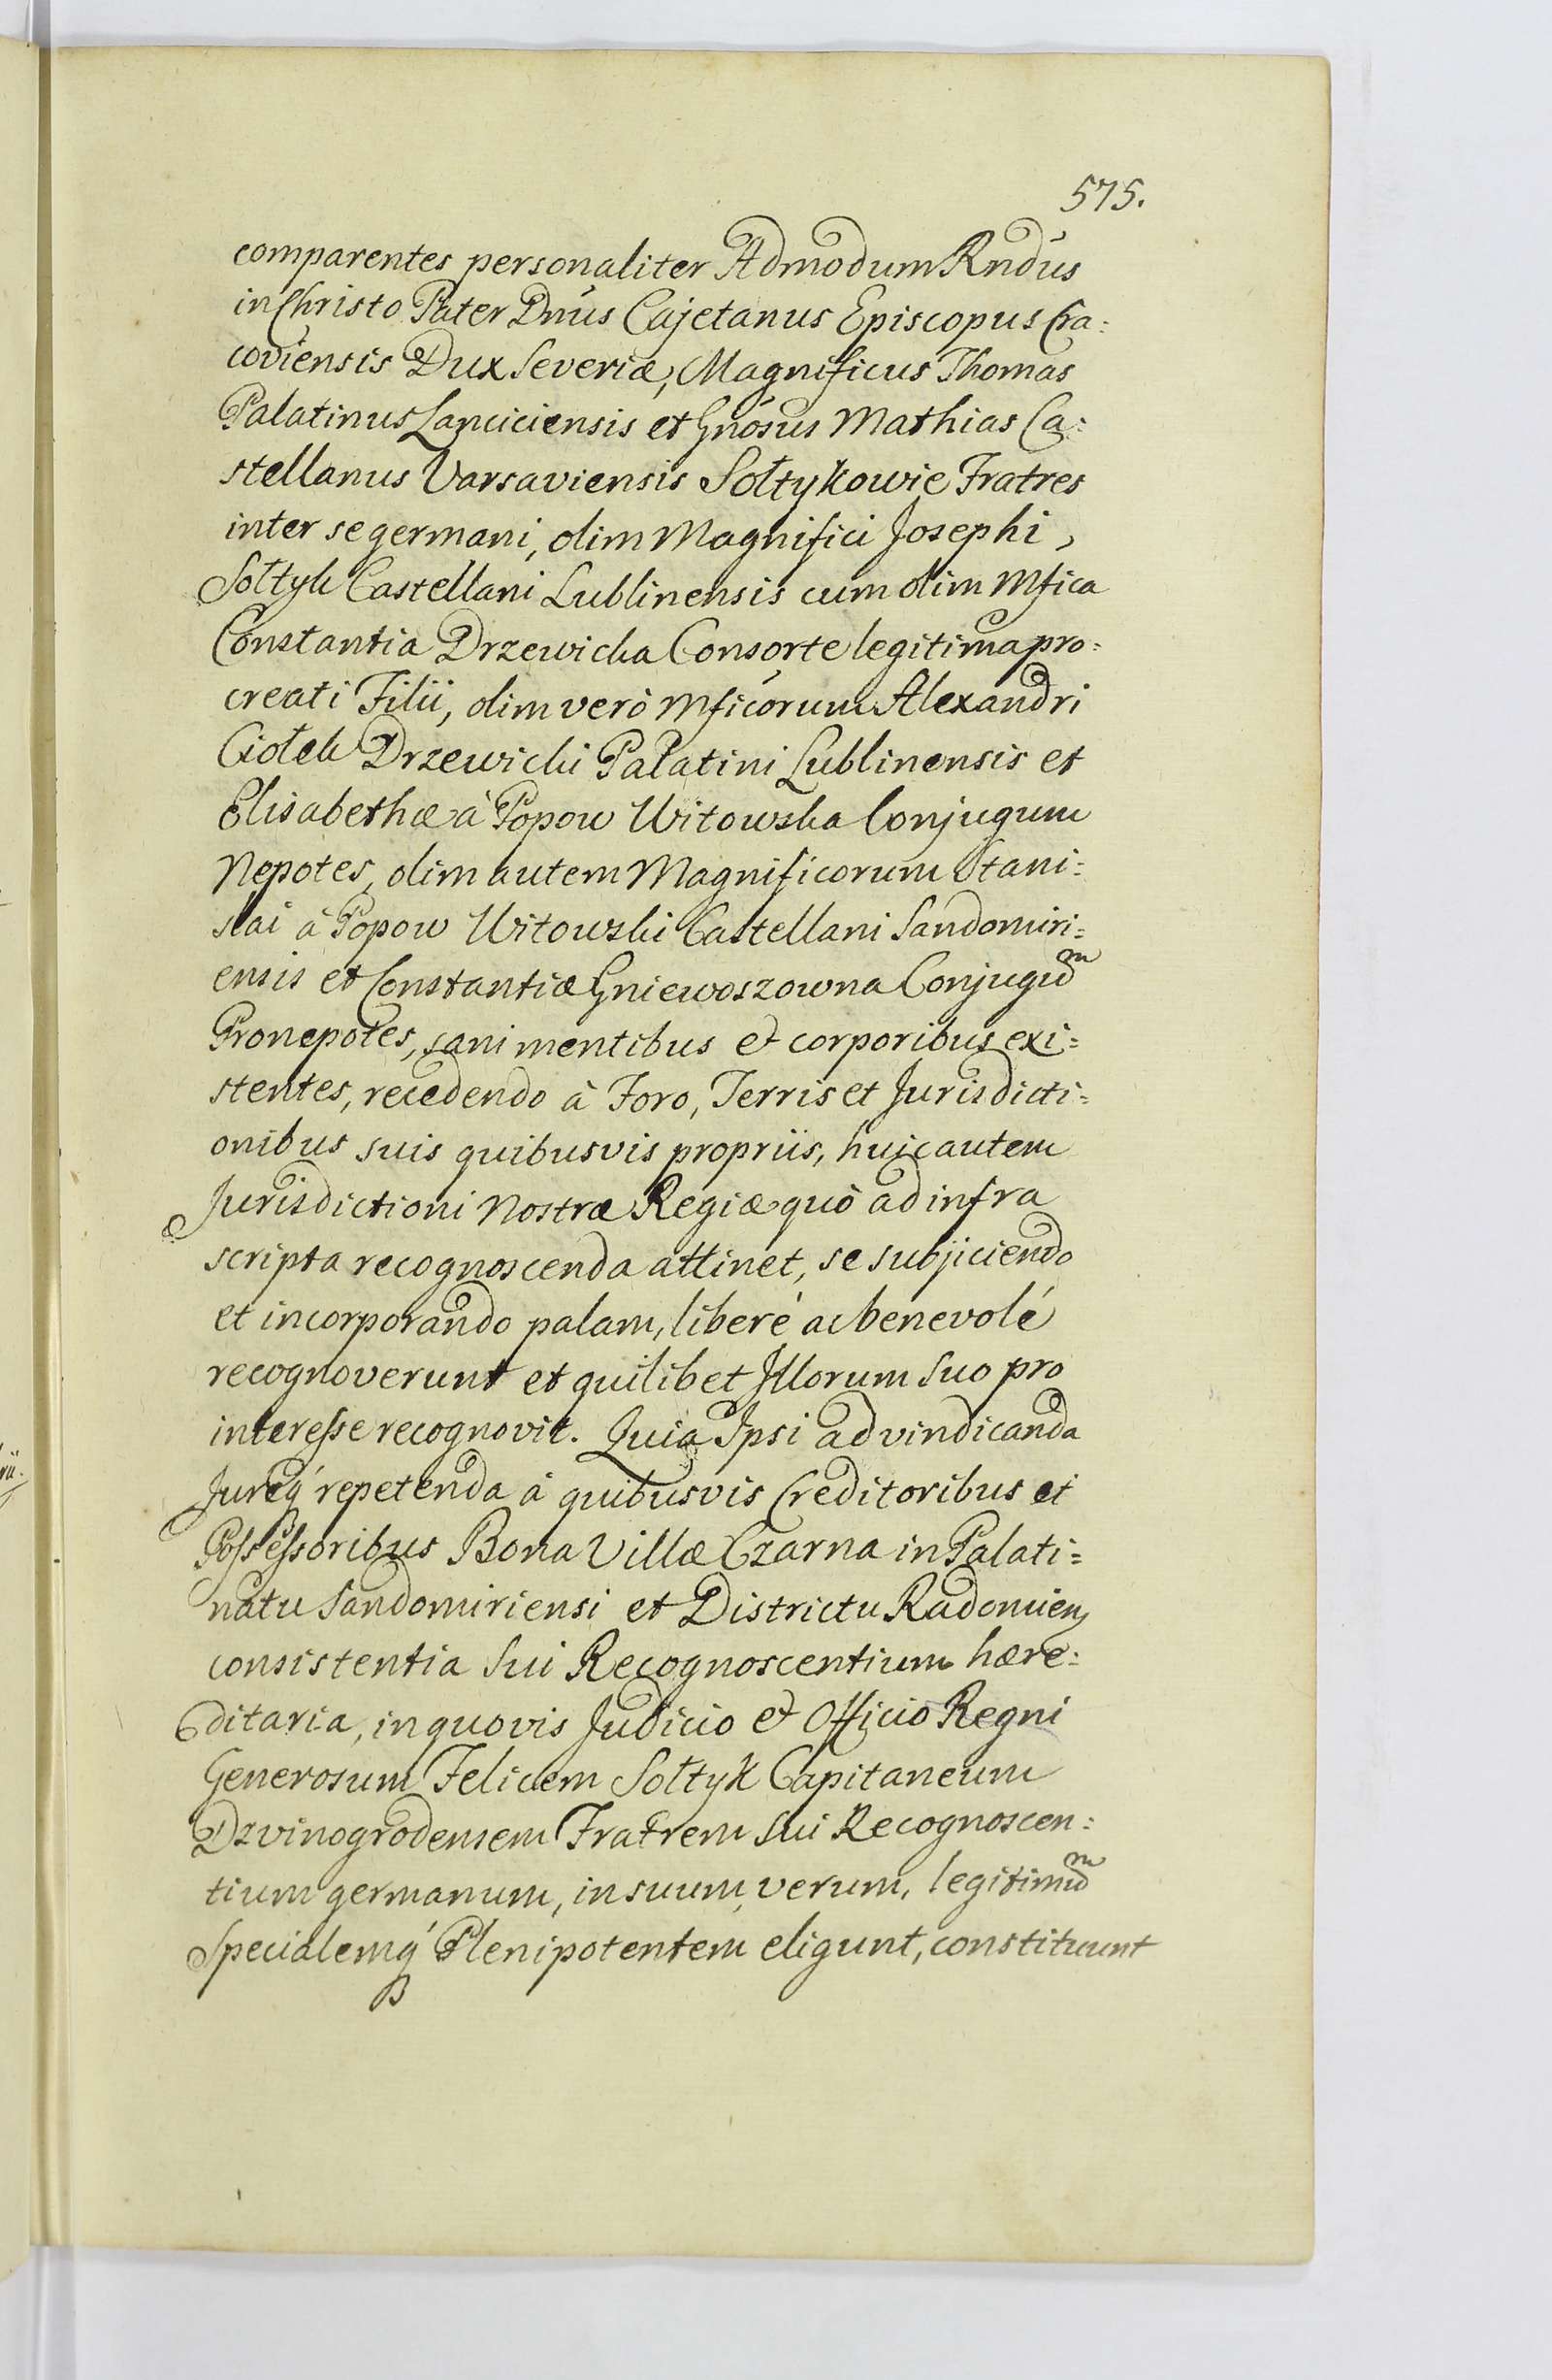 575.
comparentes personaliter Admodum Rndús
in Christo Pater Dnús Cajetanus Episcopus Cra:
coviensis Dux Severiæ, Magnificus Thomas
Palatinus Lanciciensis et Gnósus Mathias Ca:
stellanus Varsaviensis Sołtykowie Fratres
inter se germani, olim Magnifici Josephi,
Sołtyk Castellani Lublinensis cum olim Mfica
Constantia Drzewicka Consorte legitima pro:
creati Filii, olim verò Mficórum Alexandri
Ciołek Drzewicki Palatini Lublinensis et
Elisabethæ à Popow Witowska Conjugum
Nepotes, olim autem Magnificorum Stani:
slai à Popow Witowski Castellani Sandomiri:
ensis et Constantiæ Gniewoszowna Conjugum
Pronepotes, sani mentibus et corporibus exi:
stentes, recedendo à Foro, Terris et Jurisdicti:
onibus suis quibusvis propriis, huic autem
Jurisdictioni Nostræ Regiæ quò ad infra
scripta recognoscenda attinet, se subjiciendo
et incorporando palam, liberé ac benevolé
recognoverunt et quilibet Illorum suo pro
interesse recognovit. Quia Ipsi ad vindicanda
Jureq́ repetenda à quibusvis Creditoribus et
Possessoribus Bona Villæ Czarna in Palati:
natu Sandomiriensi et Districtu Radomien,
consistentia Sui Recognoscentium hære:
ditaria, in quovis Judicio et Officio Regni
Generosum Felicem Sołtyk Capitaneum
Dzvinogrodensem Fratrem Sui Recognoscen:
tium germanum, in suum, verum, legitimum
Specialemq́ Plenipotentem eligunt, constituunt
B